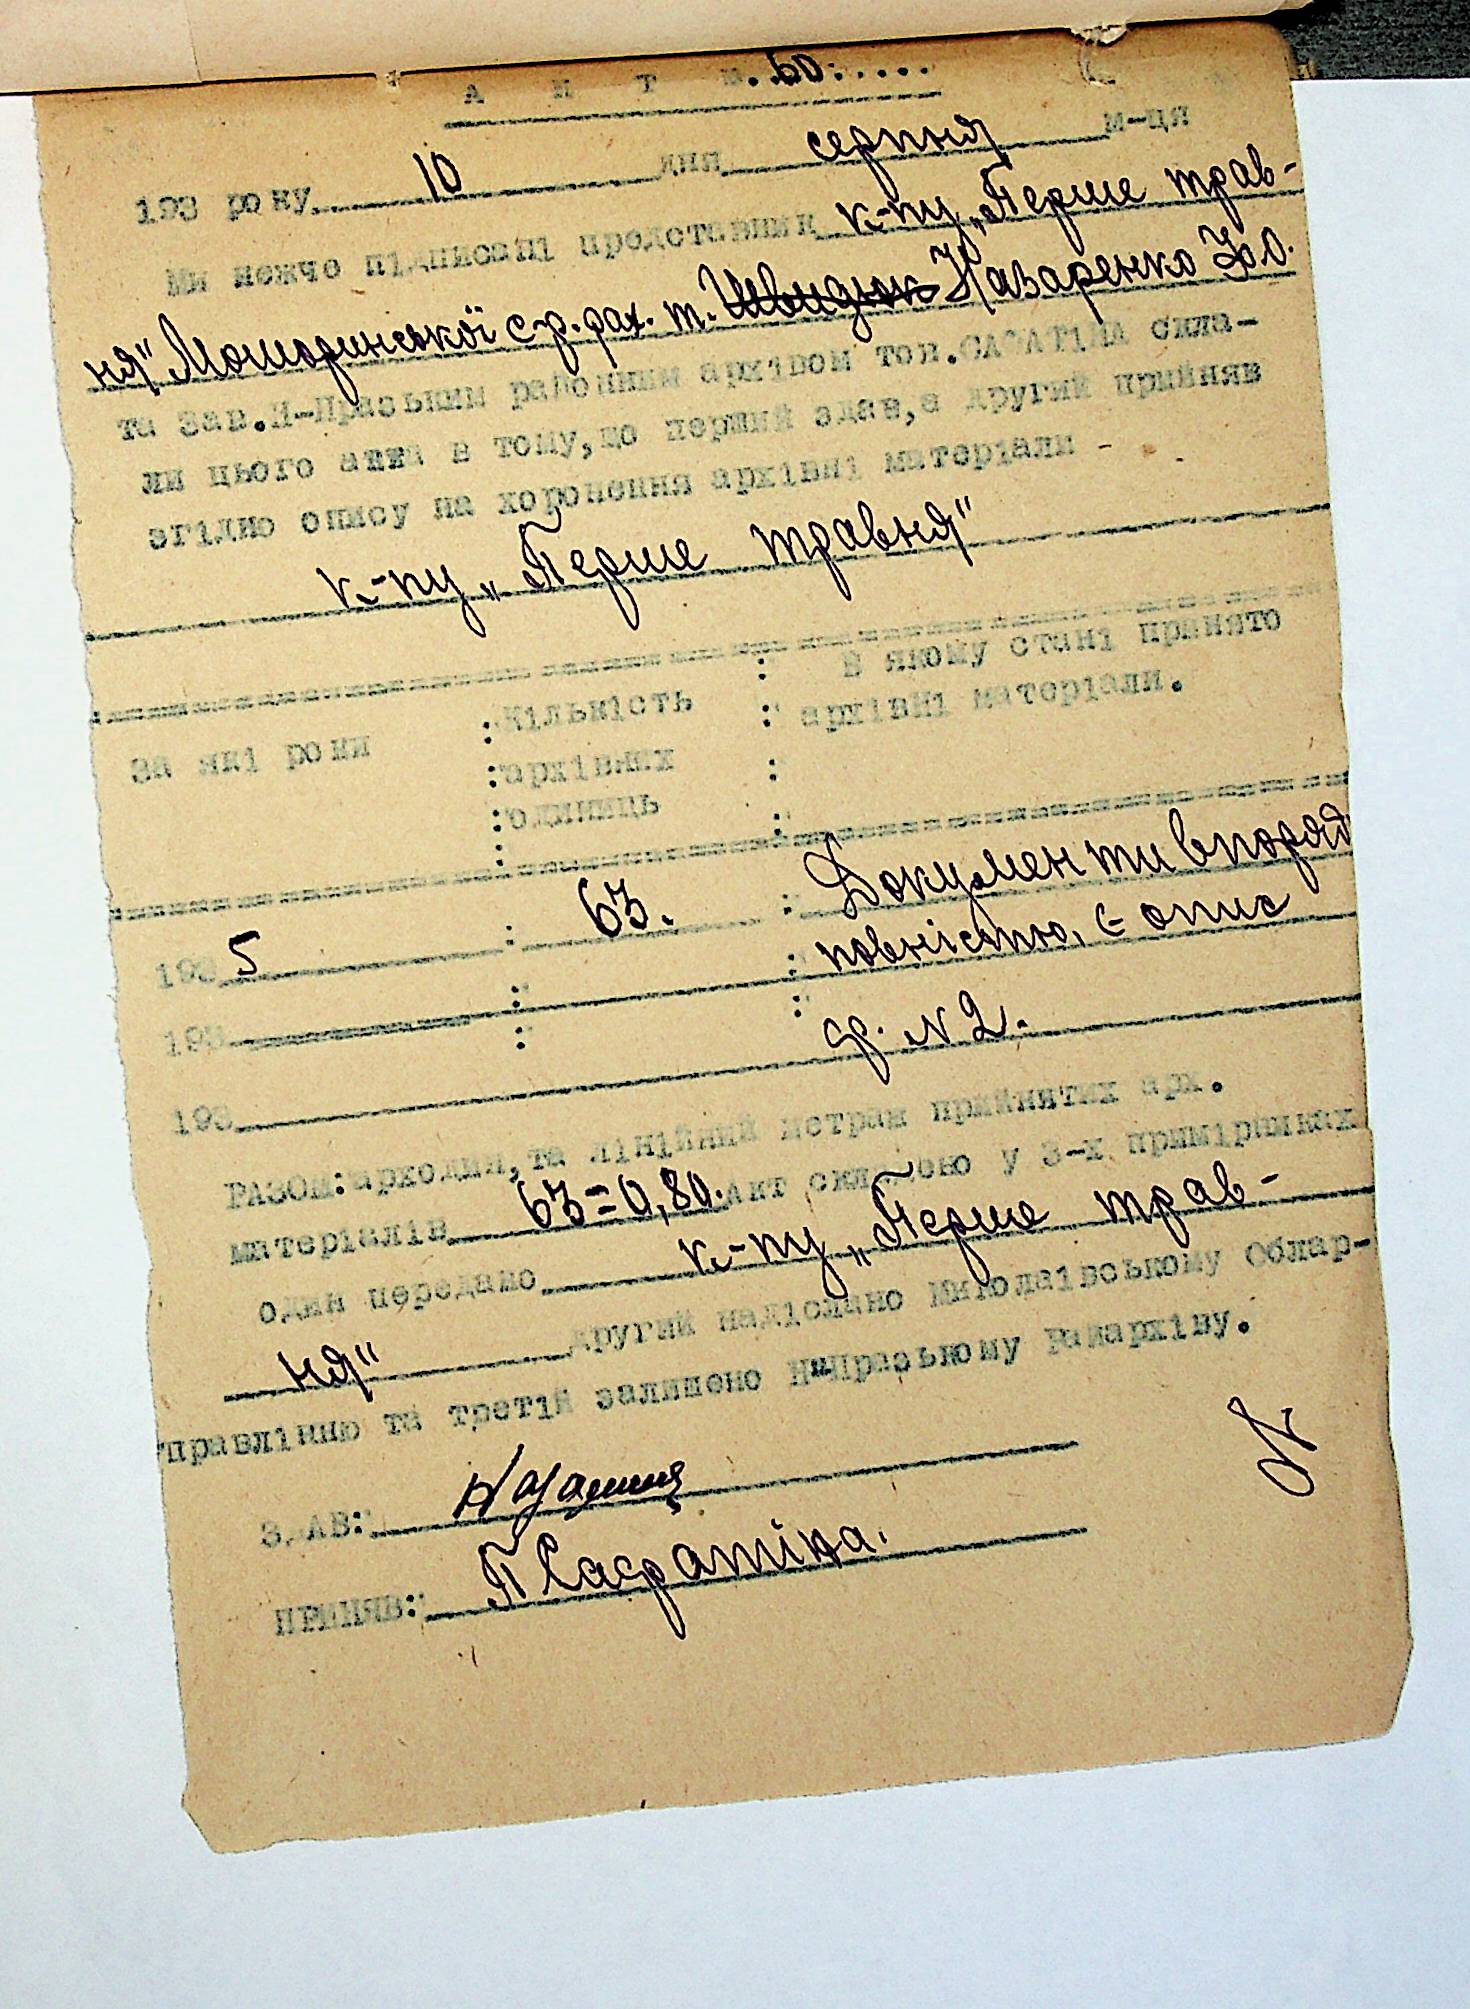 А К Т №. 60:....
193 року 10 дня серпня м-ця
Ми нежче підписані представник к-пу „Перше трав-
ня" Мошоринської с-р. рах. т. Назаренко
та Зав.Н-Празьким районним архівом тов.САФАТІНА скла-
ли цього акта в тому,що перший здав,а другий прийняв
згідно опису на хоронення архівні матеріали -
к-пу „Перше травня"
За які роки :кількість : В якому стані принято
:архівних : архівні матеріали.
:одиниць :
193 5 : 63. : Документи впоряд
193 : : повністю, є опис
193 ф. № 2.
РАЗОМ:арходин,та лінійний метраж прийнятих арх.
матеріалів 63=0,80. Акт складено у 3-х примірниках
один передано к-пу „Перше трав-
ня" другий надіслано Миколаівському Облар-
правлінню та третій залишено Н-Празькому Райархіву.
ЗДАВ:
ПРИНЯВ: П Сафатіна.